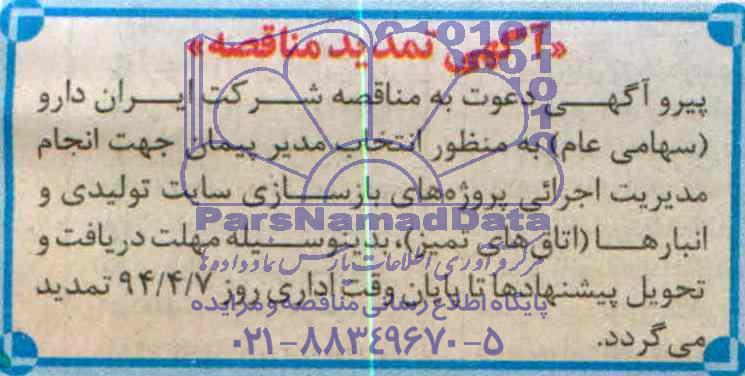 «آگهی تمدید مناقصه»
پیرو آگهی دعوت به مناقصه شرکت ایران دارو
(سهامی عام) به منظور انتخاب مدیر پیمان جهت انجام
مدیریت اجرائی پروژه‌های بازسازی سایت تولیدی و
انبارها (اتاق‌های تمیز)، بدینوسیله مهلت دریافت و
تحویل پیشنهادها تا پایان وقت اداری روز ۹۴/۴/۷ تمدید
می گردد.
ParsNamadData
مرکز فرآوری اطلاعات پارس نماد داده‌ها
پایگاه اطلاع رسانی مناقصه و مزایده
۰۲۱-۸۸۳۴۹۶۷۰-۵